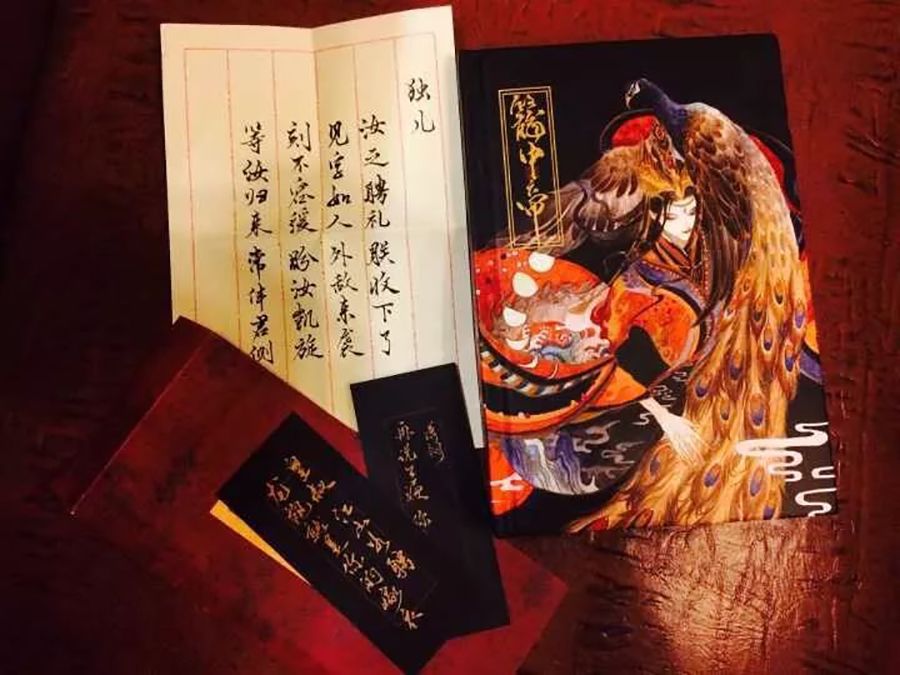 独儿
汝之聘礼朕收下了
见字如人外敌来袭
刻不容缓盼汝凯旋
等汝归来常伴君侧
籠中帝
皇叔
江山为聘